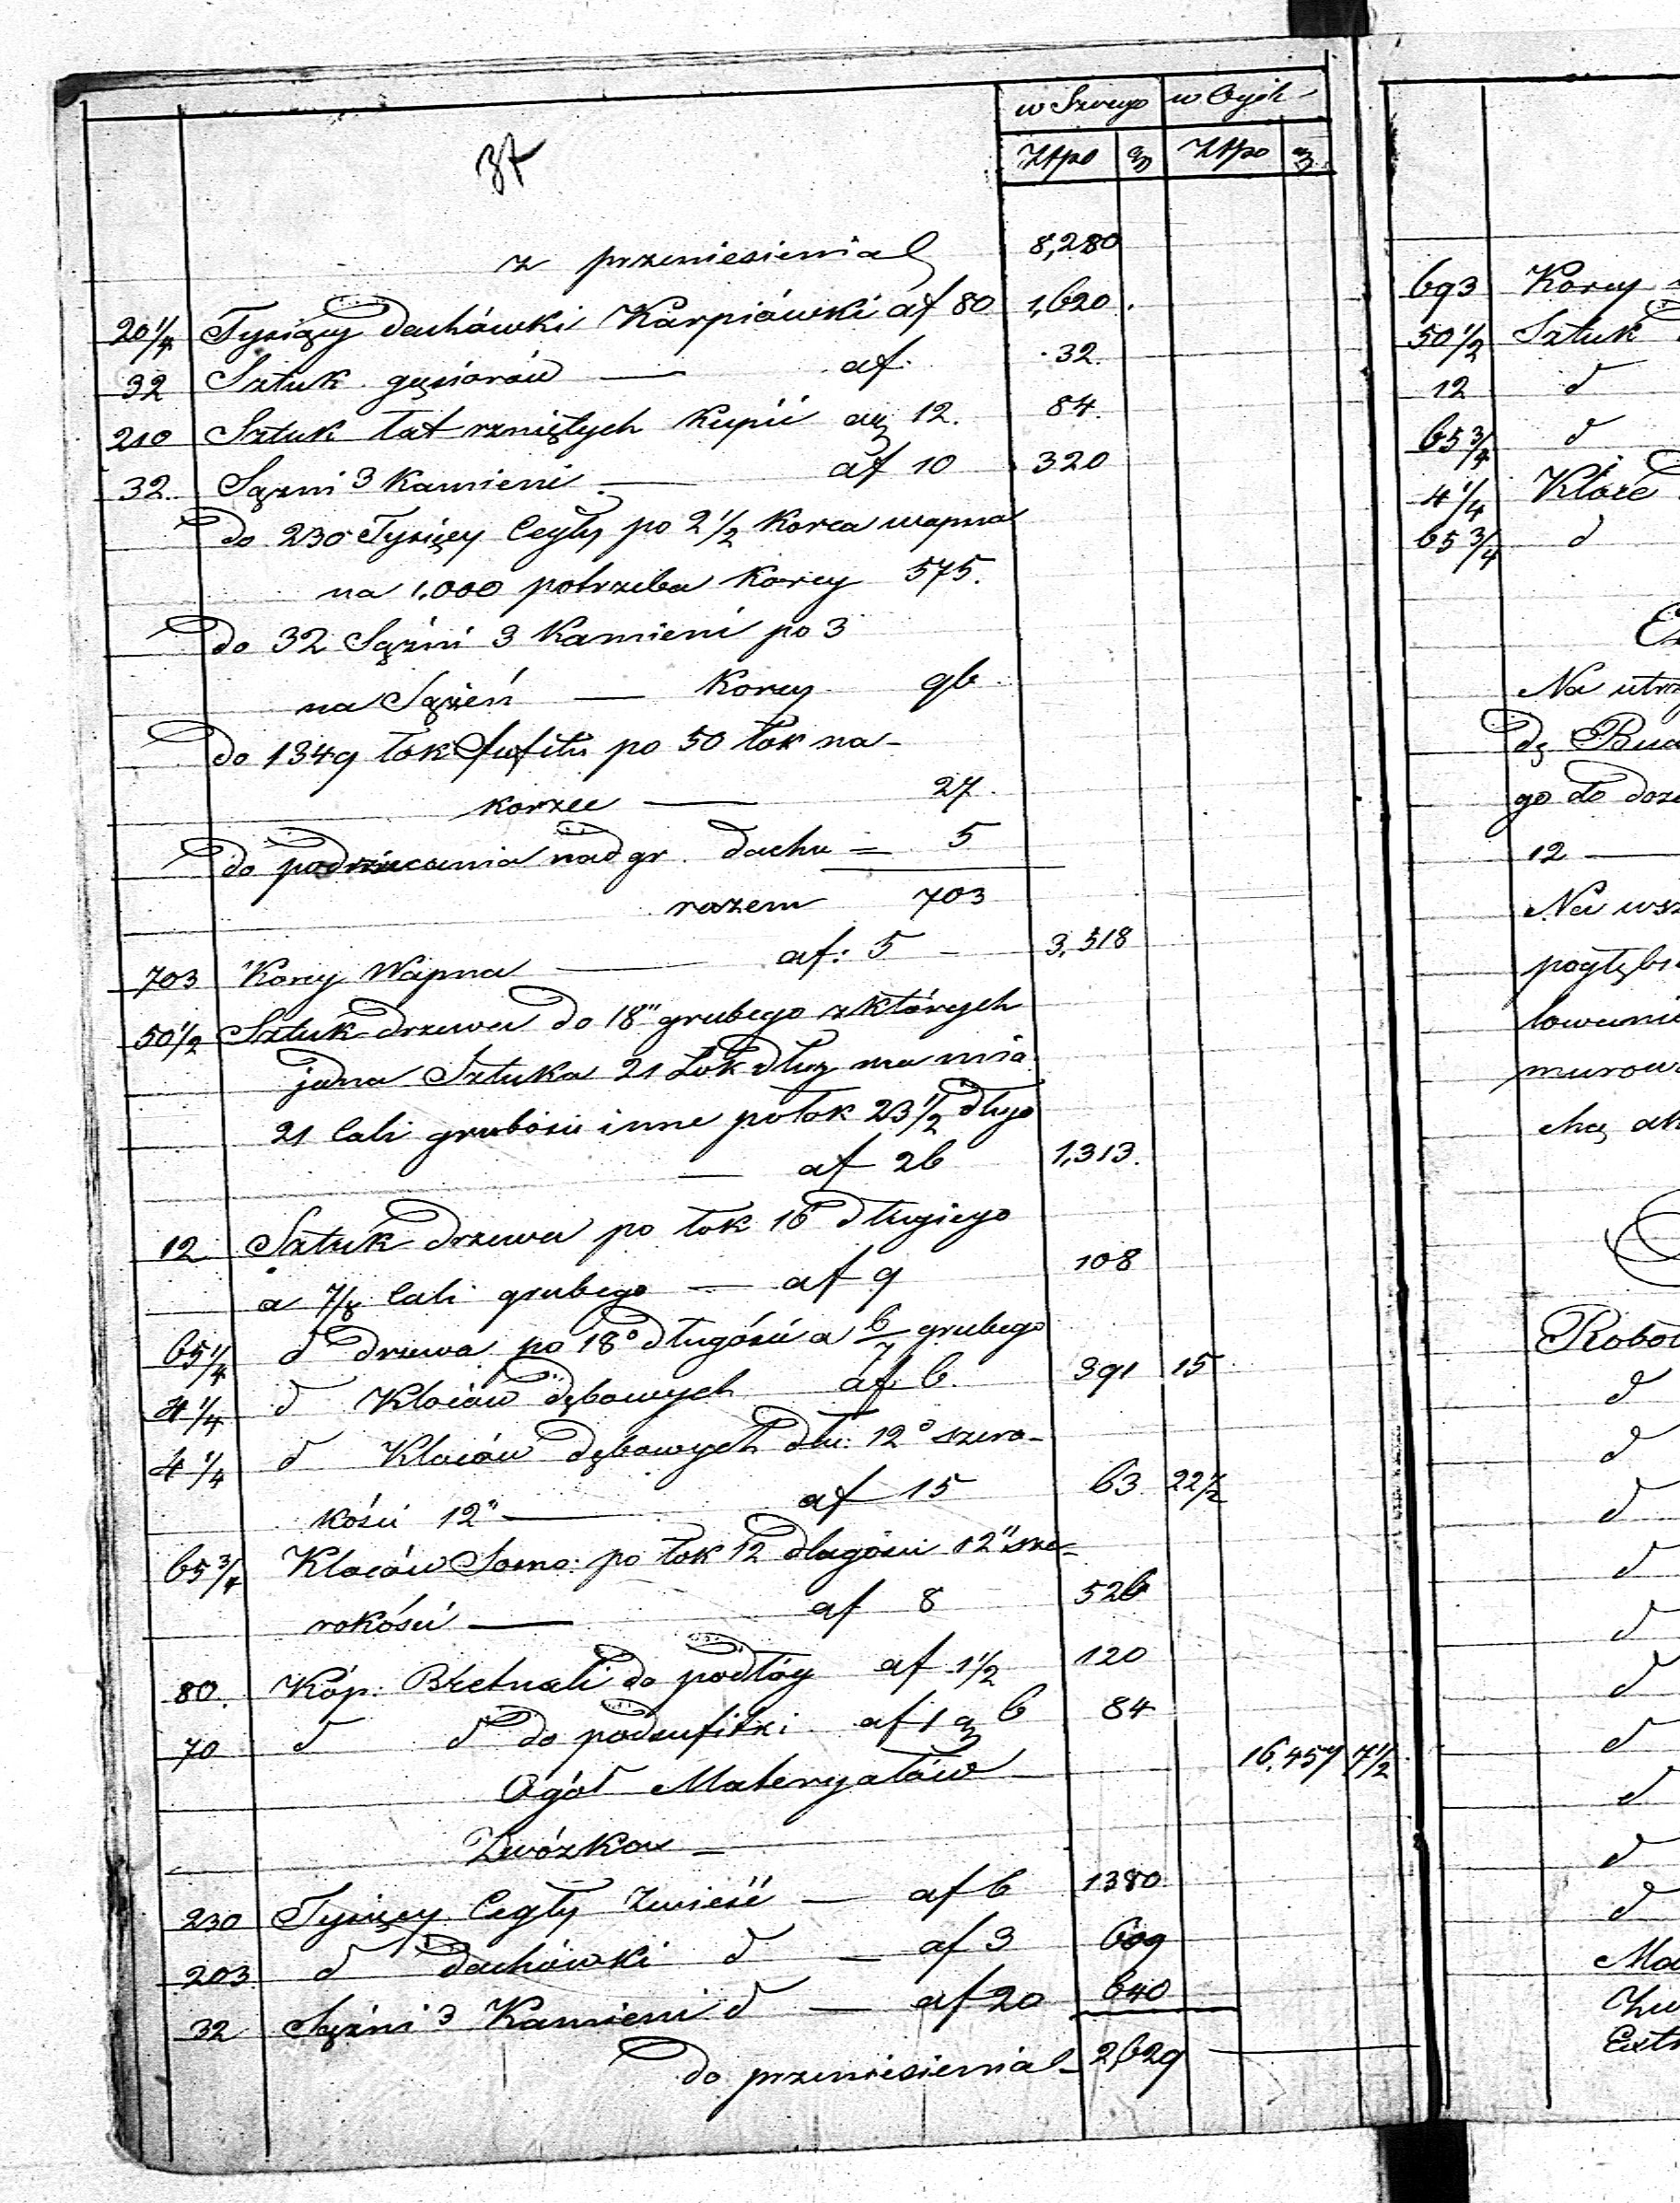 w Szczego w Ogół
Złpo gr Złpo gr
37
z przeniesienia 8,280
20 1/4 Tysięcy dachówki Karpiówki af 80 1,620.
32 Sztuk gąsiorów — af. 32.
210 Sztuk łat rzniętych kupić a gr 12. 84.
32. Sążni 3 Kamieni — af 10 320
do 230 Tysięcy Cegły po 2 1/2 Korca wapna
na 1.000 potrzeba Korcy 575.
do 32 Sążni 3 Kamieni po 3
na Sążeń — Korcy 96
do 1349 łok: sufitu po 50 łok na-
korzec — 27.
do podrzucania nad gr. dachu = 5
razem 703
703 Korcy Wapna — af: 5 — 3,518
50 1/2 Sztuk drzewa do 18" grubego z których
jedna Sztuka 21 łok dług ma mia
21 Cali grubości inne po łok 23 1/2 długo
— af 26 1,313.
12 Sztuk drzewa po łok 16 długiego
a 7/8 Cali grubego — af 9 108
65 1/4 d drzewa po 18° długości a 6/7 grubego
4 1/4 d Kloców dębowych af 6. 391 15
4 1/4 d Kloców dębowych dłu: 12° szero-
kości 12" — af 15 63 22 1/2
65 3/4 Kloców Sosno: po łok 12 długości 12" sze-
rokości — af 8 526
80. Kóp: Bretnali do podłóg af 1 1/2 120
70 d d do podsufitki af 1 gr 6 84
Ogół Materyałów 16,457 7 1/2
Zwózka —
230 Tysięcy Cegły Zwieść — af 6 1380
203 d dachówki d — af 3 609
32 Sążni 3 Kamieni d — af 20 640
do przeniesienia — 2,629
693 Korcy
50 1/2 Sztuk
12 d
65 3/4 d
4 1/4 Kloce
65 3/4 d
Na utrz
dę Bud
go do doz
12 —
Na wsz
pogłębi
lowani
murow
chę
Robo
d
d
d
d
d
d
d
d
d
d
Ma
Zw
Ext